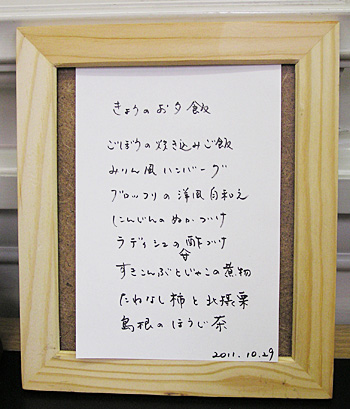 きょうのお夕飯
ごぼうの炊き込みご飯
みりん風ハンバーグ
ブロッコリの洋風白和え
にんじんのぬかづけ
ラディシュの酢づけ
すきこんぶとじゃこの煮物
たねなし柿と
島根のほうじ茶
2011.10.29